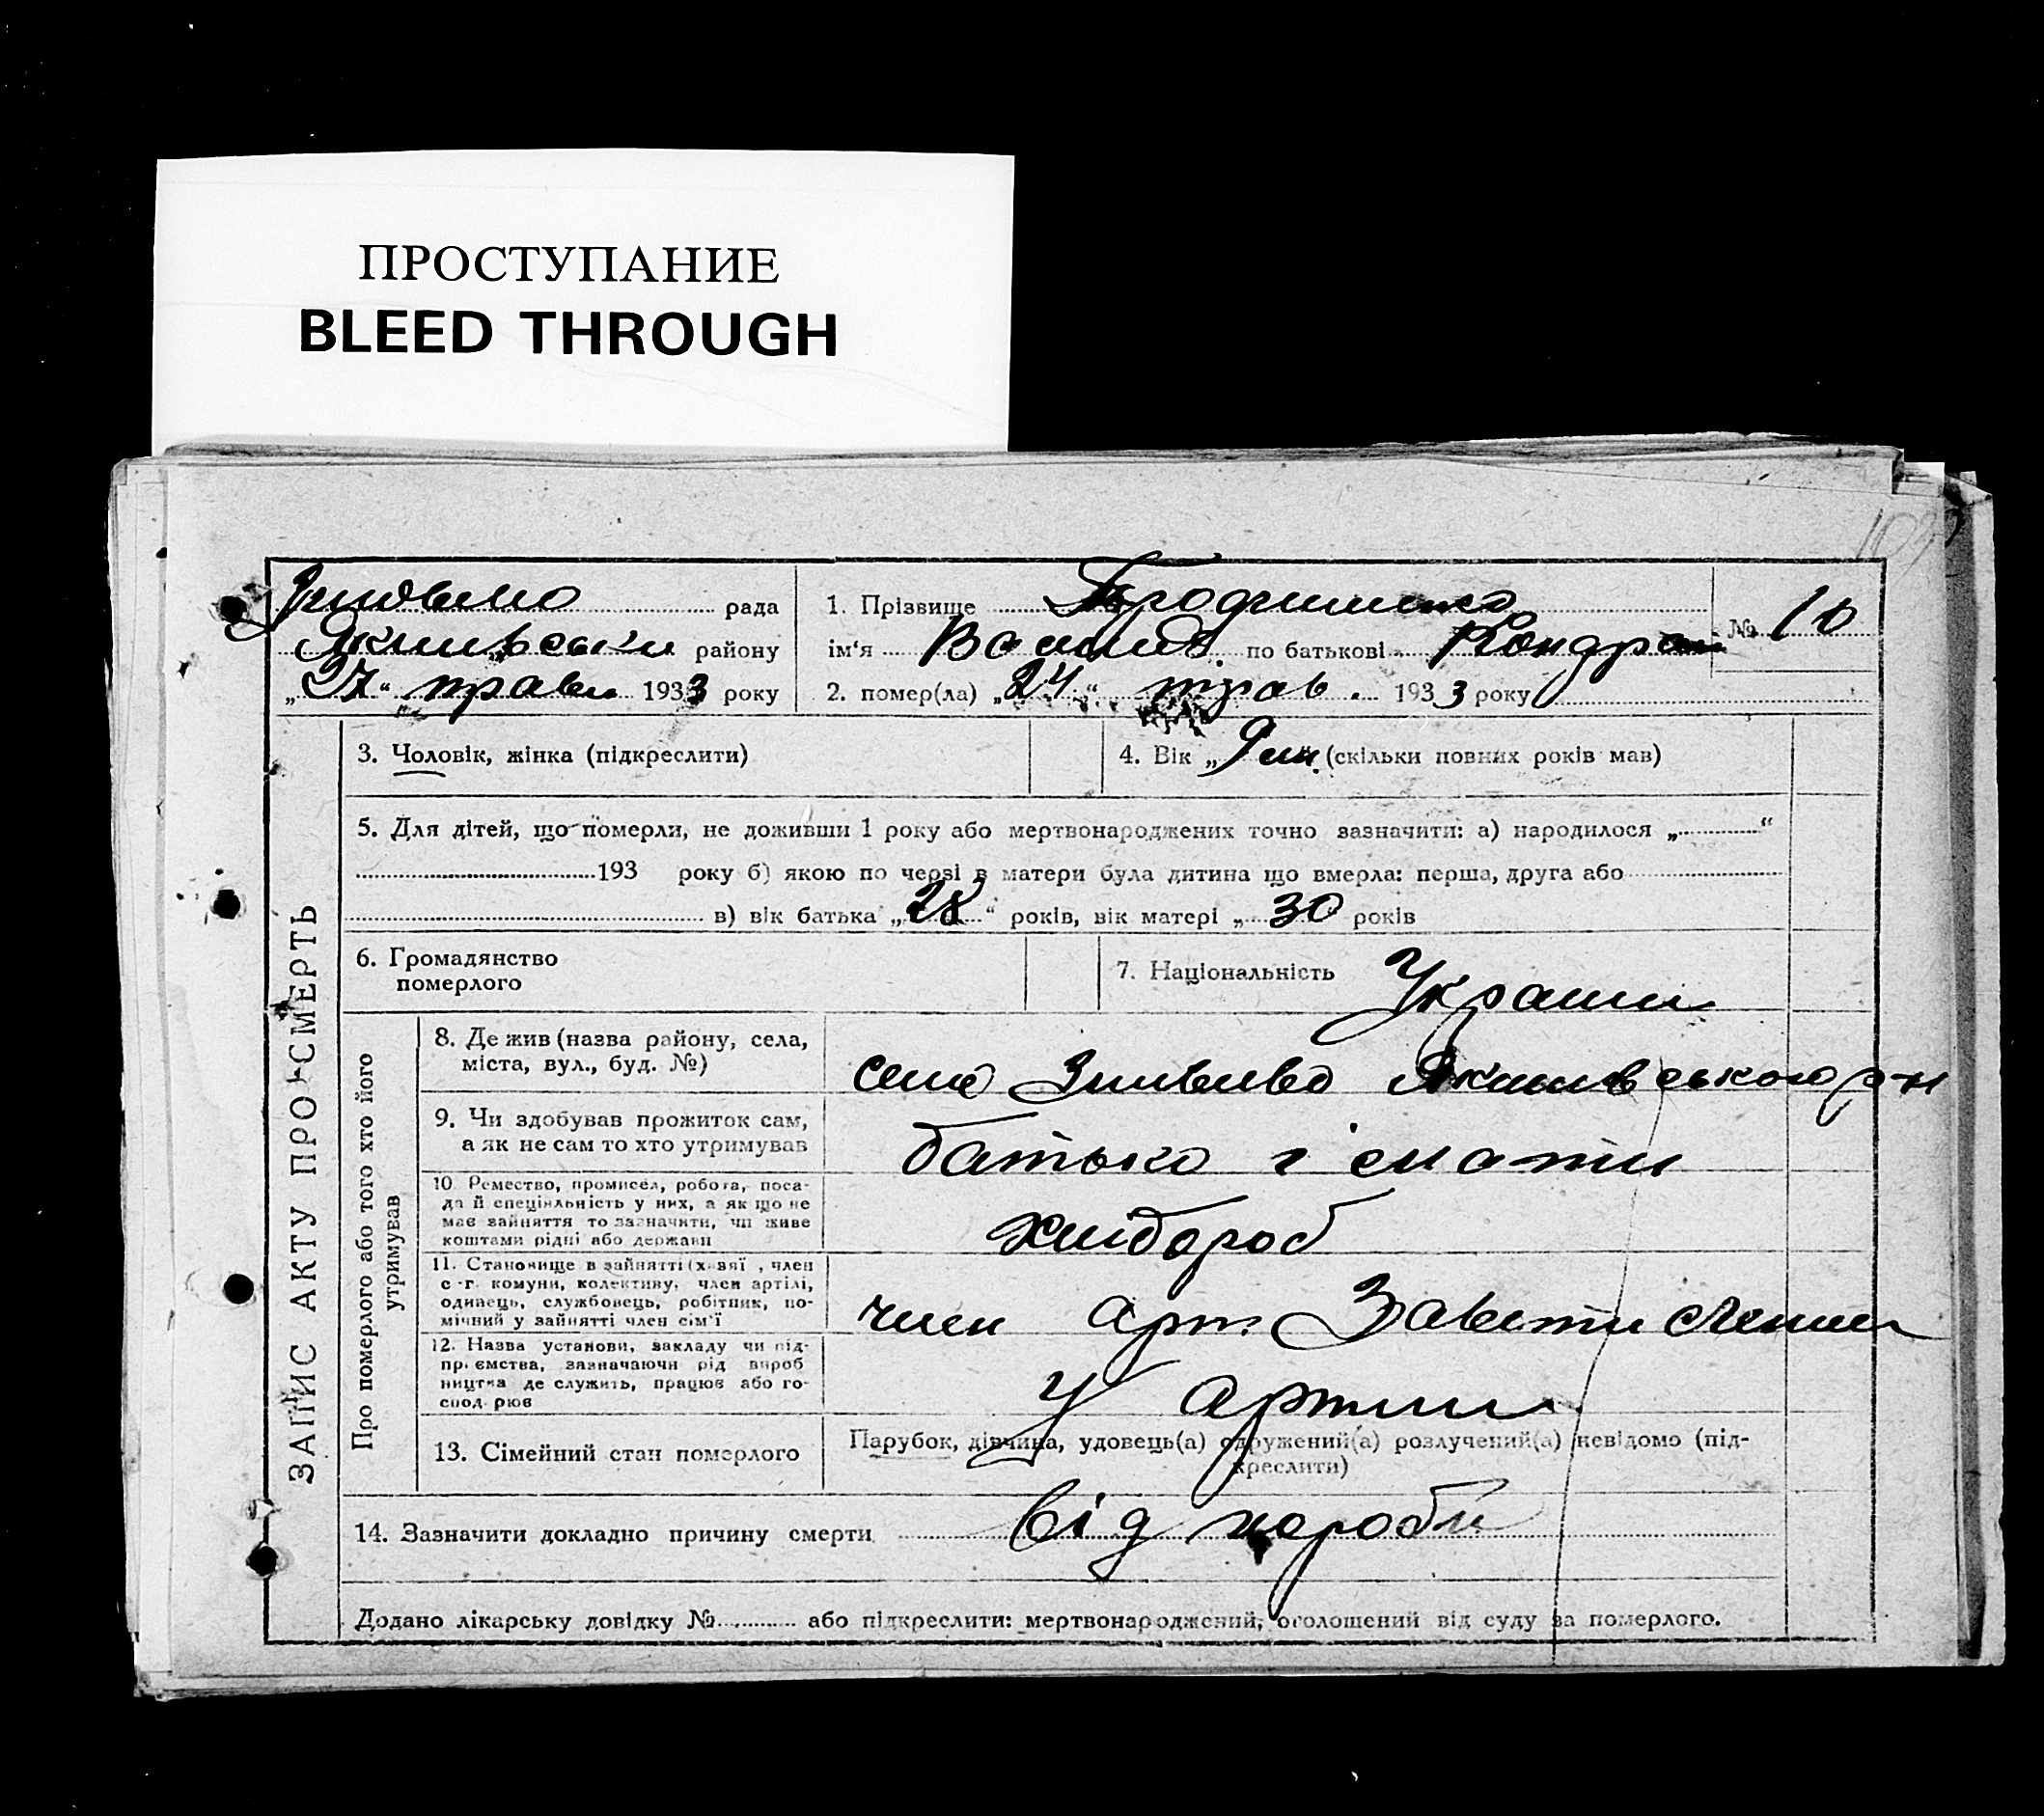 ПРОСТУПАНИЕ
BLEED THROUGH
рада
району
„27“ трав 1933 року
1. Прізвище
№ 10
ім'я Василь по батькові Кондрат
2. помер(ла) „24“ трав. 1933 року
ЗАПИС АКТУ ПРО СМЕРТЬ
3. Чоловік, жінка (підкреслити)
4. Вік „ “ (скільки повних років мав)
5. Для дітей, що померли, не доживши 1 року або мертвонароджених точно зазначити: а) народилося „ “
193 року б) якою по черзі в матери була дитина що вмерла: перша, друга або
в) вік батька „28“ років, вік матері „30 років
6. Громадянство
померлого
7. Національність Украин
Про померлого або того хто його
утримував
8. Де жив (назва району, села,
міста, вул., буд. №)
село р-н
9. Чи здобував прожиток сам,
а як не сам то хто утримував
батько і мати
10 Ремество, промисел, робота, поса-
да й спеціяльність у них, а як що не
має зайняття то зазначити, чи живе
коштами рідні або держави
хлібороб
11. Становище в зайнятті (хазяї, член
с-г. комуни, колективу, член артілі,
одинець, службовець, робітник, по-
мічний у зайнятті член сім'ї
член арт. Завети Ленин
12. Назва установи, закладу чи під-
приємства, зазначаючи рід вироб
ництва де служить, працює або го-
сподрює
У артили
13. Сімейний стан померлого
Парубок, дівчина, удовець(а) одружений(а) розлучений(а) невідомо (під-
креслити)
14. Зазначити докладно причину смерти від хороби
Додано лікарську довідку № або підкреслити: мертвонароджений, оголошений від суду за померлого.